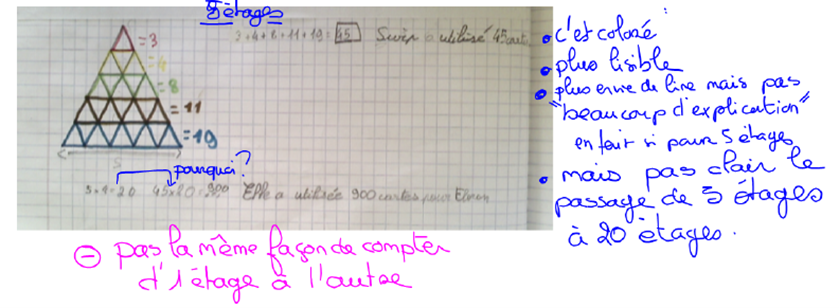 5 étages
3+4+8+11+19=45 Swip a utilisé 45 cartes
=3
=4
=8
=11
=19
5
pourquoi?
5×4=20 45×20=900 Elle a utilisée 900 cartes pour
• c'est coloré
• plus lisible
• plus envie de lire mais pas
"beaucoup d'explication"
en fait si pour 5 étages
• mais pas clair le
passage de 5 étages
à 20 étages.
⊖ pas la même façon de compter
d'1 étage à l'autre